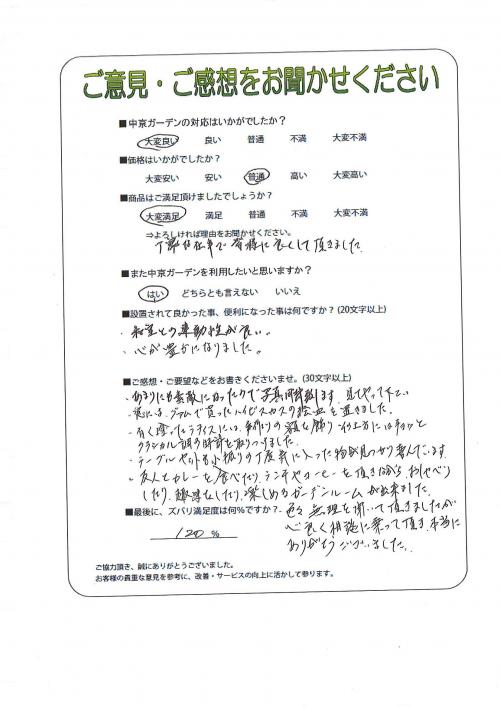 ご意見・ご感想をお聞かせください
■中京ガーデンの対応はいかがでしたか？
大変良い 良い 普通 不満 大変不満
■価格はいかがでしたか？
大変安い 安い 普通 高い 大変高い
■商品はご満足頂けましたでしょうか？
大変満足 満足 普通 不満 大変不満
⇒よろしければ理由をお聞かせください。
丁寧な仕事で皆様に良くして頂きました。
■また中京ガーデンを利用したいと思いますか？
はい どちらとも言えない いいえ
■設置されて良かった事、便利になった事は何ですか？(20文字以上)
・和室との連動性が良い。
・心が豊かになりました。
■ご感想・ご要望などをお書きくださいませ。(30文字以上)
・あまりにも素敵になったので写真同封致します。見てやって下さい
・壁には、グアムで買ったハイビスカスの絵皿を置きました。
・白く塗ったラティスには、手作りの額を飾り、仕上には
クラシカル調の時計を取りつけました。
・テーブルセットも小振りの丁度気に入った物が見つかり喜んでいます。
・友人とカレーを食べたり、ランチやコーヒーを頂きながら、おしゃべり
したり、趣味をしたり、楽しめるガーデンルームが出来ました。
■最後に、ズバリ満足度は何％ですか？
120 %
色々無理を聞いて頂きましたが
心良く相談に乗って頂き、本当に
ありがとうございました。
ご協力頂き、誠にありがとうございました。
お客様の貴重な意見を参考に、改善・サービスの向上に活かして参ります。